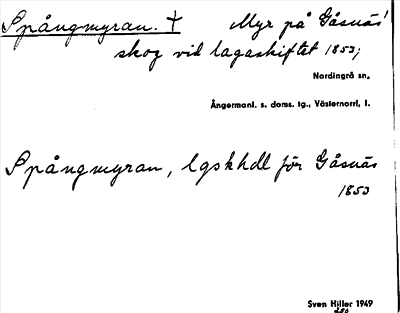 Spångmyran. † Myr på Gåsnäs'
skog vid lagaskiftet 1853;
Nordingrå sn.
Ångermanl. s. doms. tg., Västernorrl. l.
Spångmyran, lgskhdl för Gåsnäs
1853
Sven Hiller 1949